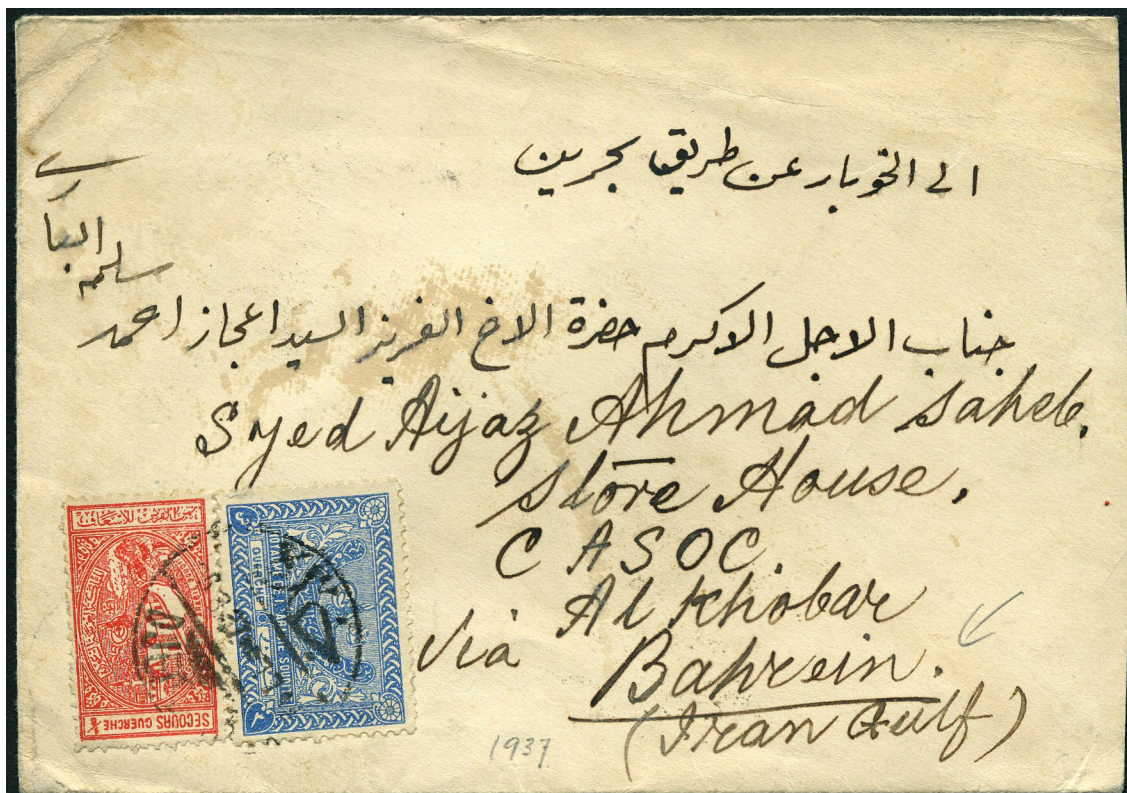 الى الخوبار عن طريق بحرين
جناب الاجل الاكرم حضرة الاخ العزيز السيد اعجاز احمد
سلمه
Syed Aijaz Ahmad Saheb.
Store House.
C A S O C.
Al Khobar
Via Bahrein.
(Iran Gulf)
1937
SECOURS GUERCHE 1/8